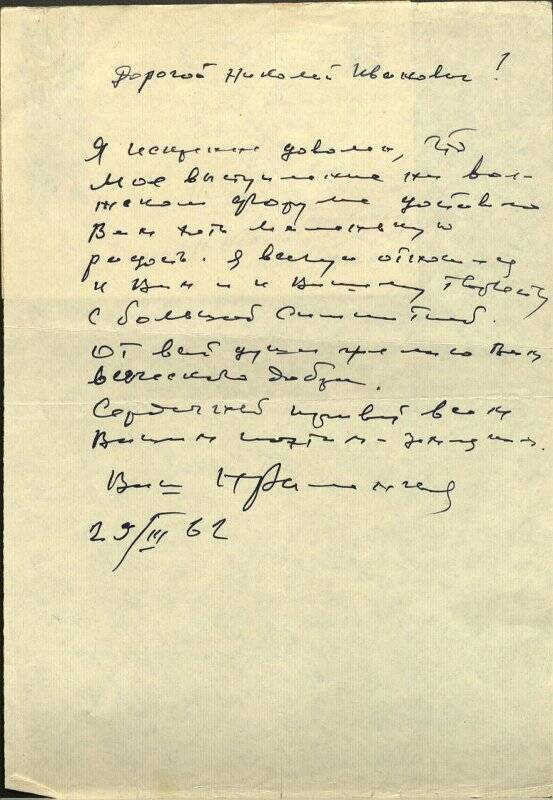 Дорогой Николай Иванович!
Я искренне доволен, что
мое выступление на вол-
жском форуме доставило
Вам хоть маленькую
радость. Я всегда отношусь
к Вам и к Вашему творчеству
с большой симпатией.
От всей души желаю Вам
всяческого добра.
Сердечный привет всем
Вашим
Ваш
29/III 62